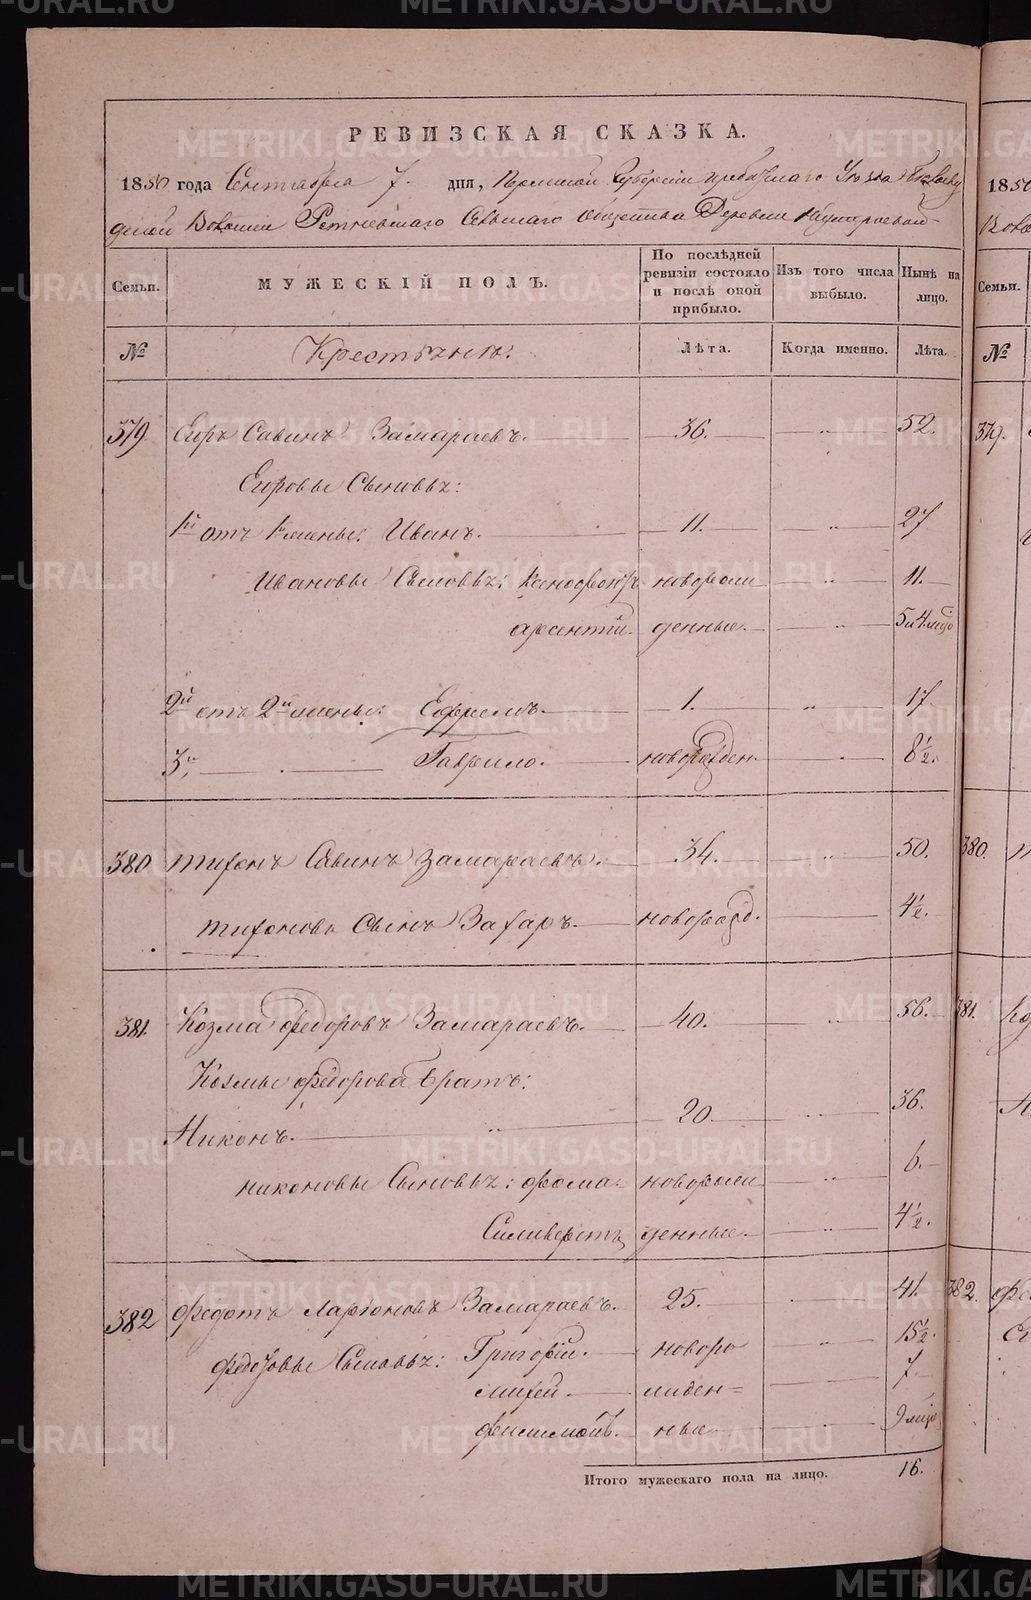 METRIKI.GASO-URAL.RU
РЕВИЗСКАЯ СКАЗКА.
1850 года Сентября 7. дня, Пермской Губернии Ирбитскаго Уезда
Волости Ретневскаго Сельскаго Общества Деревни
Семьи. МУЖЕСКІЙ ПОЛЪ. По послѣдней ревизіи состояло и послѣ оной прибыло. Изъ того числа выбыло. Нынѣ на лицо.
№ Крестьянъ: Лѣта. Когда именно. Лѣта.
379 Егоръ Савинъ Замараевъ. 36. 52.
Егоровы Сыновья:
1й отъ 1й жены: Иванъ. 11. 27
Ивановы Сыновья: Ксенофонтъ новорож 11.
Арсентій. денные. 5 и 4 мѣс
2й отъ 2й жены: Ефремъ. 1. 17.
3й Гаврило. новорожден. 8½.
380 Тихонъ Савинъ Замараевъ. 34. 50.
Тихоновъ Сынъ Захаръ. новорожд. 4½.
381. Козма Федоровъ Замараевъ. 40. 56.
Козмы Федорова Братъ:
Никонъ. 20. 36.
Никоновы Сыновья: Фома новорож 6.
Силиверстъ денные. 4½.
382 Федотъ Ларіоновъ Замараевъ. 25. 41.
Федотовы Сыновья: Григорій. новоро 15½.
ждент= 7.
Филимонъ. ные 9 мѣс
Итого мужескаго пола на лицо. 16.
1850
Воло
Семьи.
№
379.
380.
381.
382.